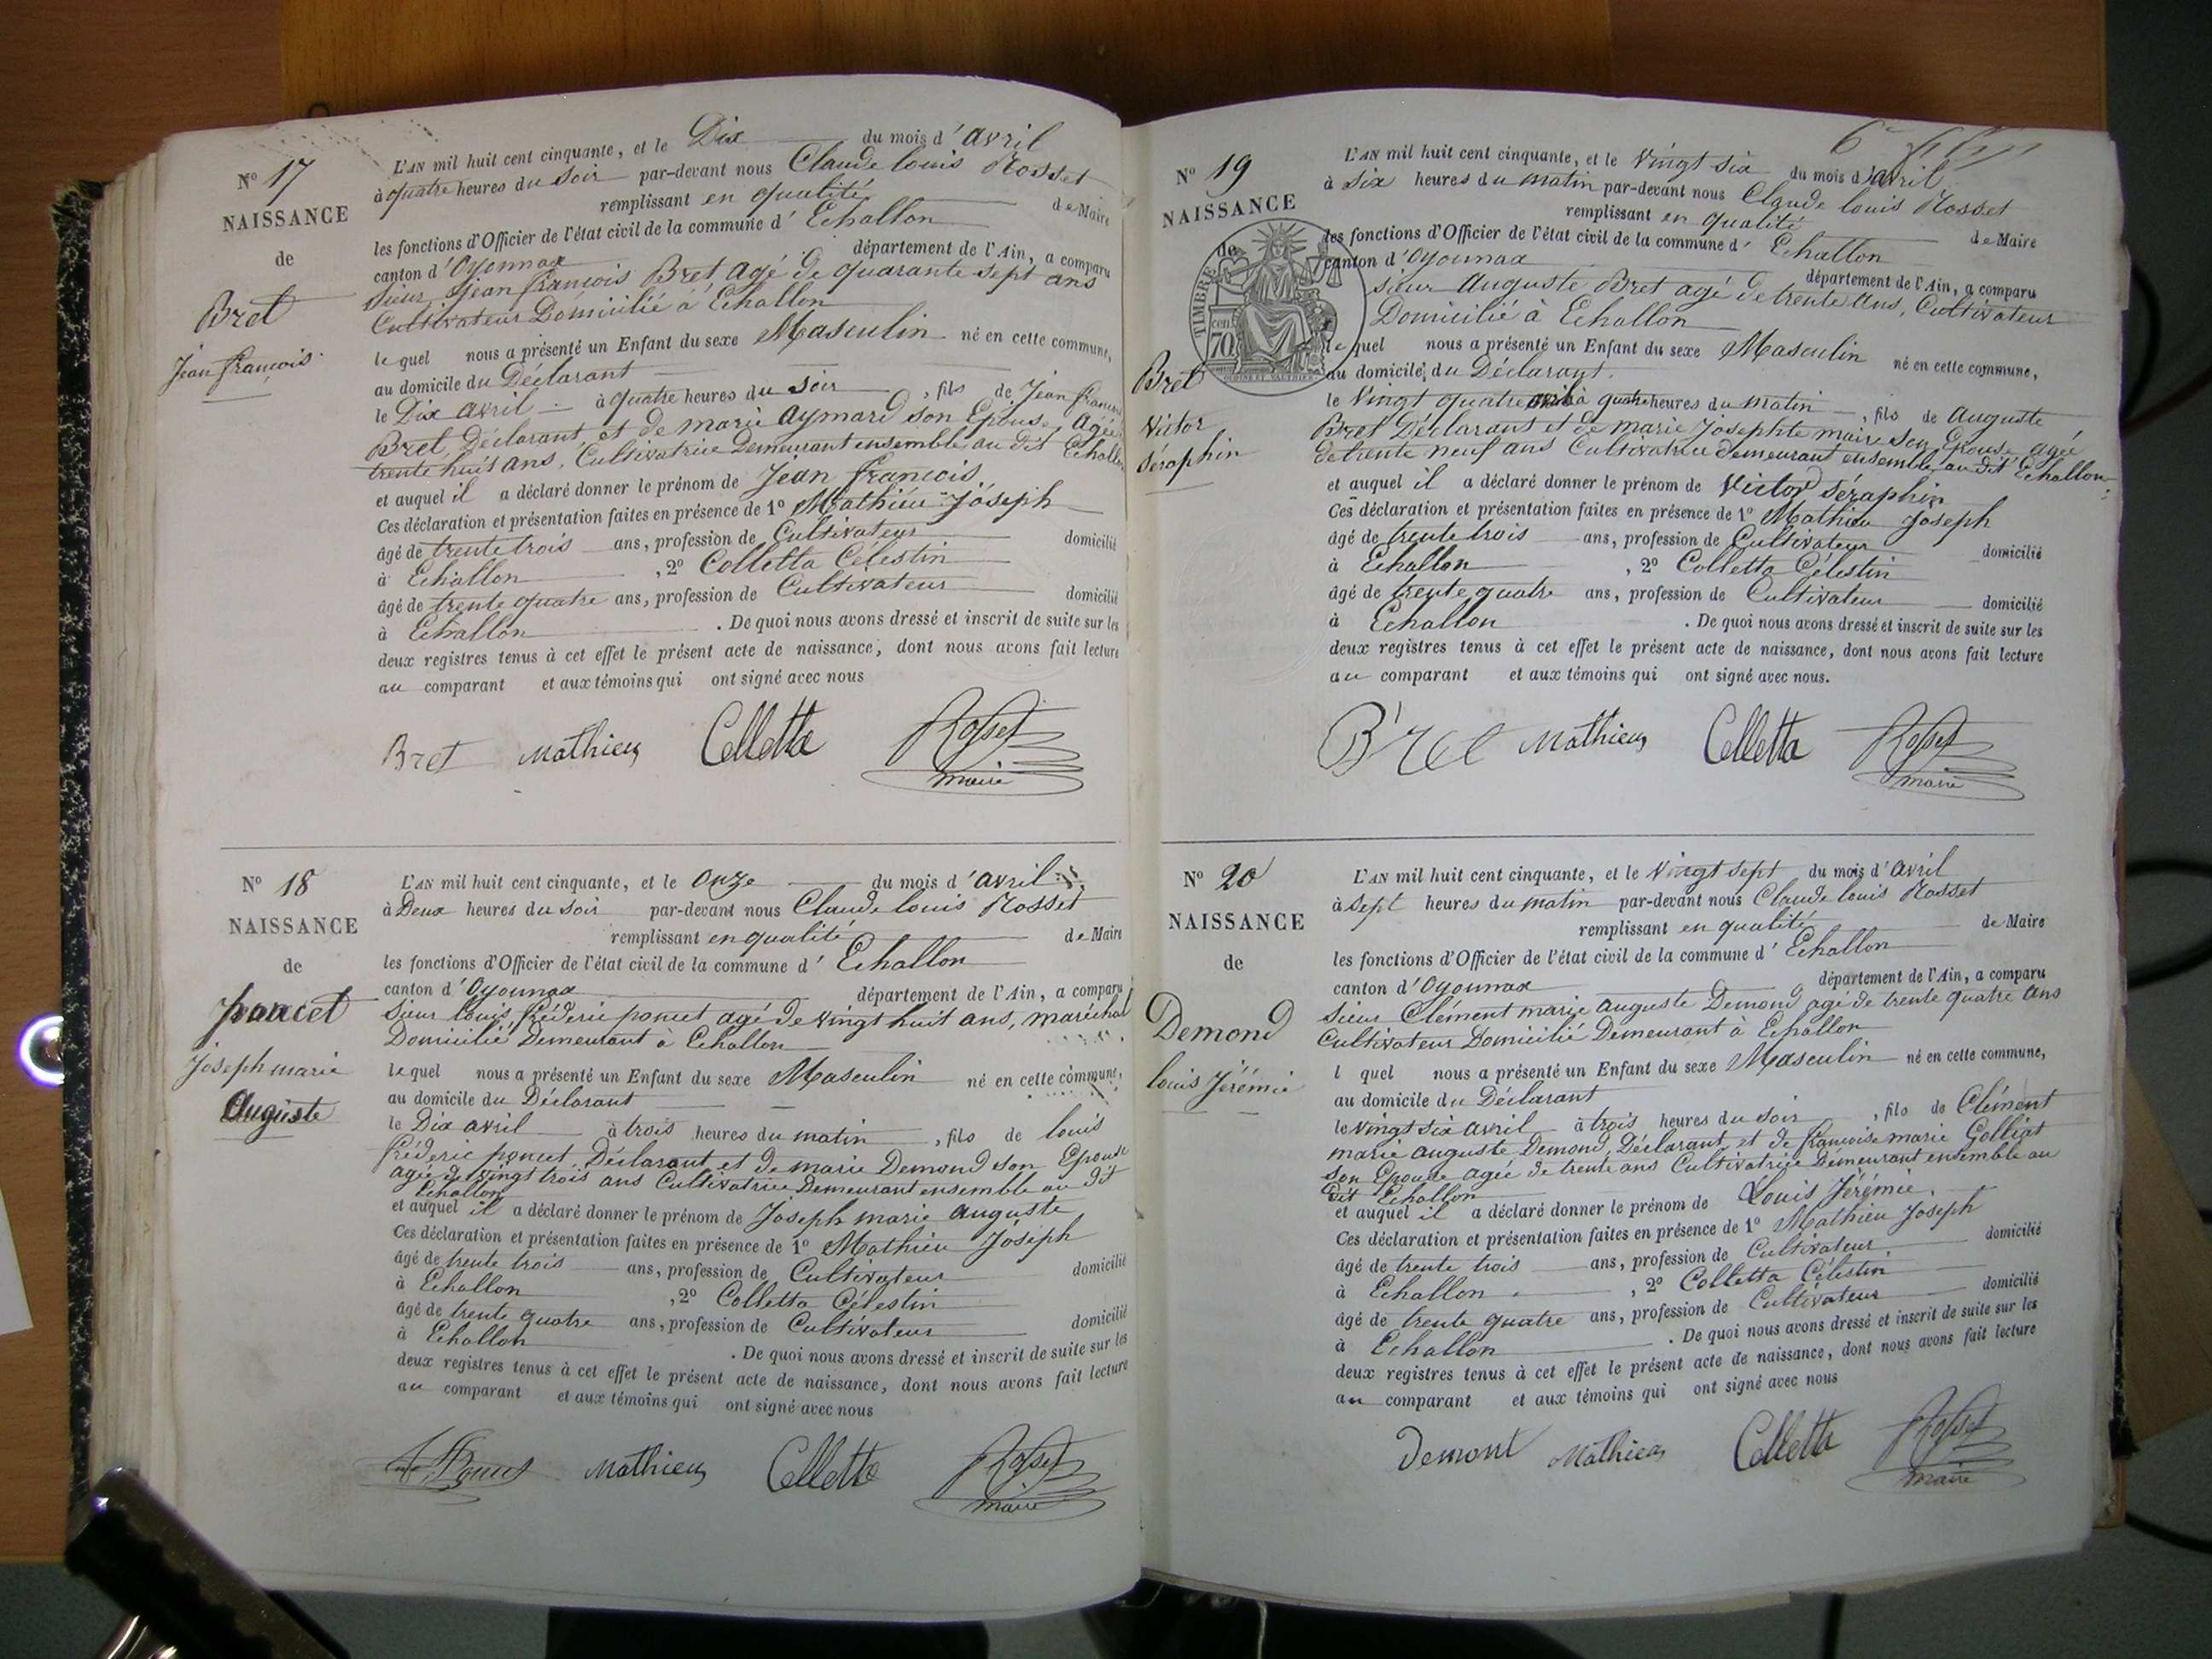 N° 17
NAISSANCE
de
Bret
Jean françois
L'AN mil huit cent cinquante, et le Dix du mois d'avril
à quatre heures du soir par-devant nous Claude louis Rosset
remplissant en qualité de Maire
les fonctions d'Officier de l'état civil de la commune d'Echallon
canton d'Oyonnax département de l'Ain, a comparu
sieur Jean françois Bret agé de quarante sept ans
Cultivateur Domicilié à Echallon
lequel nous a présenté un Enfant du sexe Masculin né en cette commune,
au domicile du Déclarant
le Dix avril à quatre heures du soir, fils de Jean françois
Bret, Déclarant et de marie aymard son Epouse, agée
trente huit ans, Cultivatrice Demeurant ensemble au dit Echallon
et auquel il a déclaré donner le prénom de Jean françois
Ces déclaration et présentation faites en présence de 1° Mathieu Joseph
âgé de trente trois ans, profession de Cultivateur domicilié
à Echallon, 2° Colletta Célestin
âgé de trente quatre ans, profession de Cultivateur domicilié
à Echallon. De quoi nous avons dressé et inscrit de suite sur les
deux registres tenus à cet effet le présent acte de naissance, dont nous avons fait lecture
au comparant et aux témoins qui ont signé avec nous
Bret Mathieu Colletta Rosset
maire
N° 18
NAISSANCE
de
poncet
Joseph marie
Auguste
L'AN mil huit cent cinquante, et le onze du mois d'avril
à Deux heures du soir par-devant nous Claude louis Rosset
remplissant en qualité de Maire
les fonctions d'Officier de l'état civil de la commune d'Echallon
canton d'Oyonnax département de l'Ain, a comparu
sieur louis fréderic poncet agé de vingt huit ans, maréchal
Domicilié Demeurant à Echallon
lequel nous a présenté un Enfant du sexe Masculin né en cette commune,
au domicile du Déclarant
le Dix avril à trois heures du matin, fils de louis
fréderic poncet Déclarant et de marie Demond son Epouse
agée de vingt trois ans Cultivatrice Demeurant ensemble au dit
Echallon
et auquel il a déclaré donner le prénom de Joseph marie auguste
Ces déclaration et présentation faites en présence de 1° Mathieu Joseph
âgé de trente trois ans, profession de Cultivateur domicilié
à Echallon, 2° Colletta Célestin
âgé de trente quatre ans, profession de Cultivateur domicilié
à Echallon. De quoi nous avons dressé et inscrit de suite sur les
deux registres tenus à cet effet le présent acte de naissance, dont nous avons fait lecture
au comparant et aux témoins qui ont signé avec nous
Poncet Mathieu Colletta Rosset
maire
N° 19
NAISSANCE
de
TIMBRE
cen. 70
Bret
Victor
Séraphin
L'AN mil huit cent cinquante, et le vingt six du mois d'avril
à six heures du matin par-devant nous Claude louis Rosset
remplissant en qualité de Maire
les fonctions d'Officier de l'état civil de la commune d'Echallon
canton d'Oyonnax département de l'Ain, a comparu
sieur Auguste Bret agé de trente ans, Cultivateur
Domicilié à Echallon
lequel nous a présenté un Enfant du sexe Masculin né en cette commune,
au domicile du Déclarant
le vingt quatre avril à quatre heures du matin, fils de auguste
Bret Déclarant et de marie Josephte mair son Epouse agée
de trente neuf ans Cultivatrice demeurant ensemble au dit Echallon
et auquel il a déclaré donner le prénom de Victor Séraphin
Ces déclaration et présentation faites en présence de 1° Mathieu Joseph
âgé de trente trois ans, profession de Cultivateur domicilié
à Echallon, 2° Colletta Célestin
âgé de trente quatre ans, profession de Cultivateur domicilié
à Echallon. De quoi nous avons dressé et inscrit de suite sur les
deux registres tenus à cet effet le présent acte de naissance, dont nous avons fait lecture
au comparant et aux témoins qui ont signé avec nous.
Bret Mathieu Colletta Rosset
maire
N° 20
NAISSANCE
de
Demond
louis Jérémie
L'AN mil huit cent cinquante, et le vingt sept du mois d'avril
à sept heures du matin par-devant nous Claude louis Rosset
remplissant en qualité de Maire
les fonctions d'Officier de l'état civil de la commune d'Echallon
canton d'Oyonnax département de l'Ain, a comparu
sieur Clément marie auguste Demond agé de trente quatre ans
Cultivateur Domicilié Demeurant à Echallon
l quel nous a présenté un Enfant du sexe Masculin né en cette commune,
au domicile du Déclarant
le vingt six avril à trois heures du soir, fils de Clément
marie auguste Demond, Déclarant et de françoise marie Golliat
son Epouse agée de trente ans Cultivatrice Demeurant ensemble au
dit Echallon
et auquel il a déclaré donner le prénom de Louis Jérémie.
Ces déclaration et présentation faites en présence de 1° Mathieu Joseph
âgé de trente trois ans, profession de Cultivateur domicilié
à Echallon, 2° Colletta Célestin
âgé de trente quatre ans, profession de Cultivateur domicilié
à Echallon. De quoi nous avons dressé et inscrit de suite sur les
deux registres tenus à cet effet le présent acte de naissance, dont nous avons fait lecture
au comparant et aux témoins qui ont signé avec nous
Demont Mathieu Colletta Rosset
maire